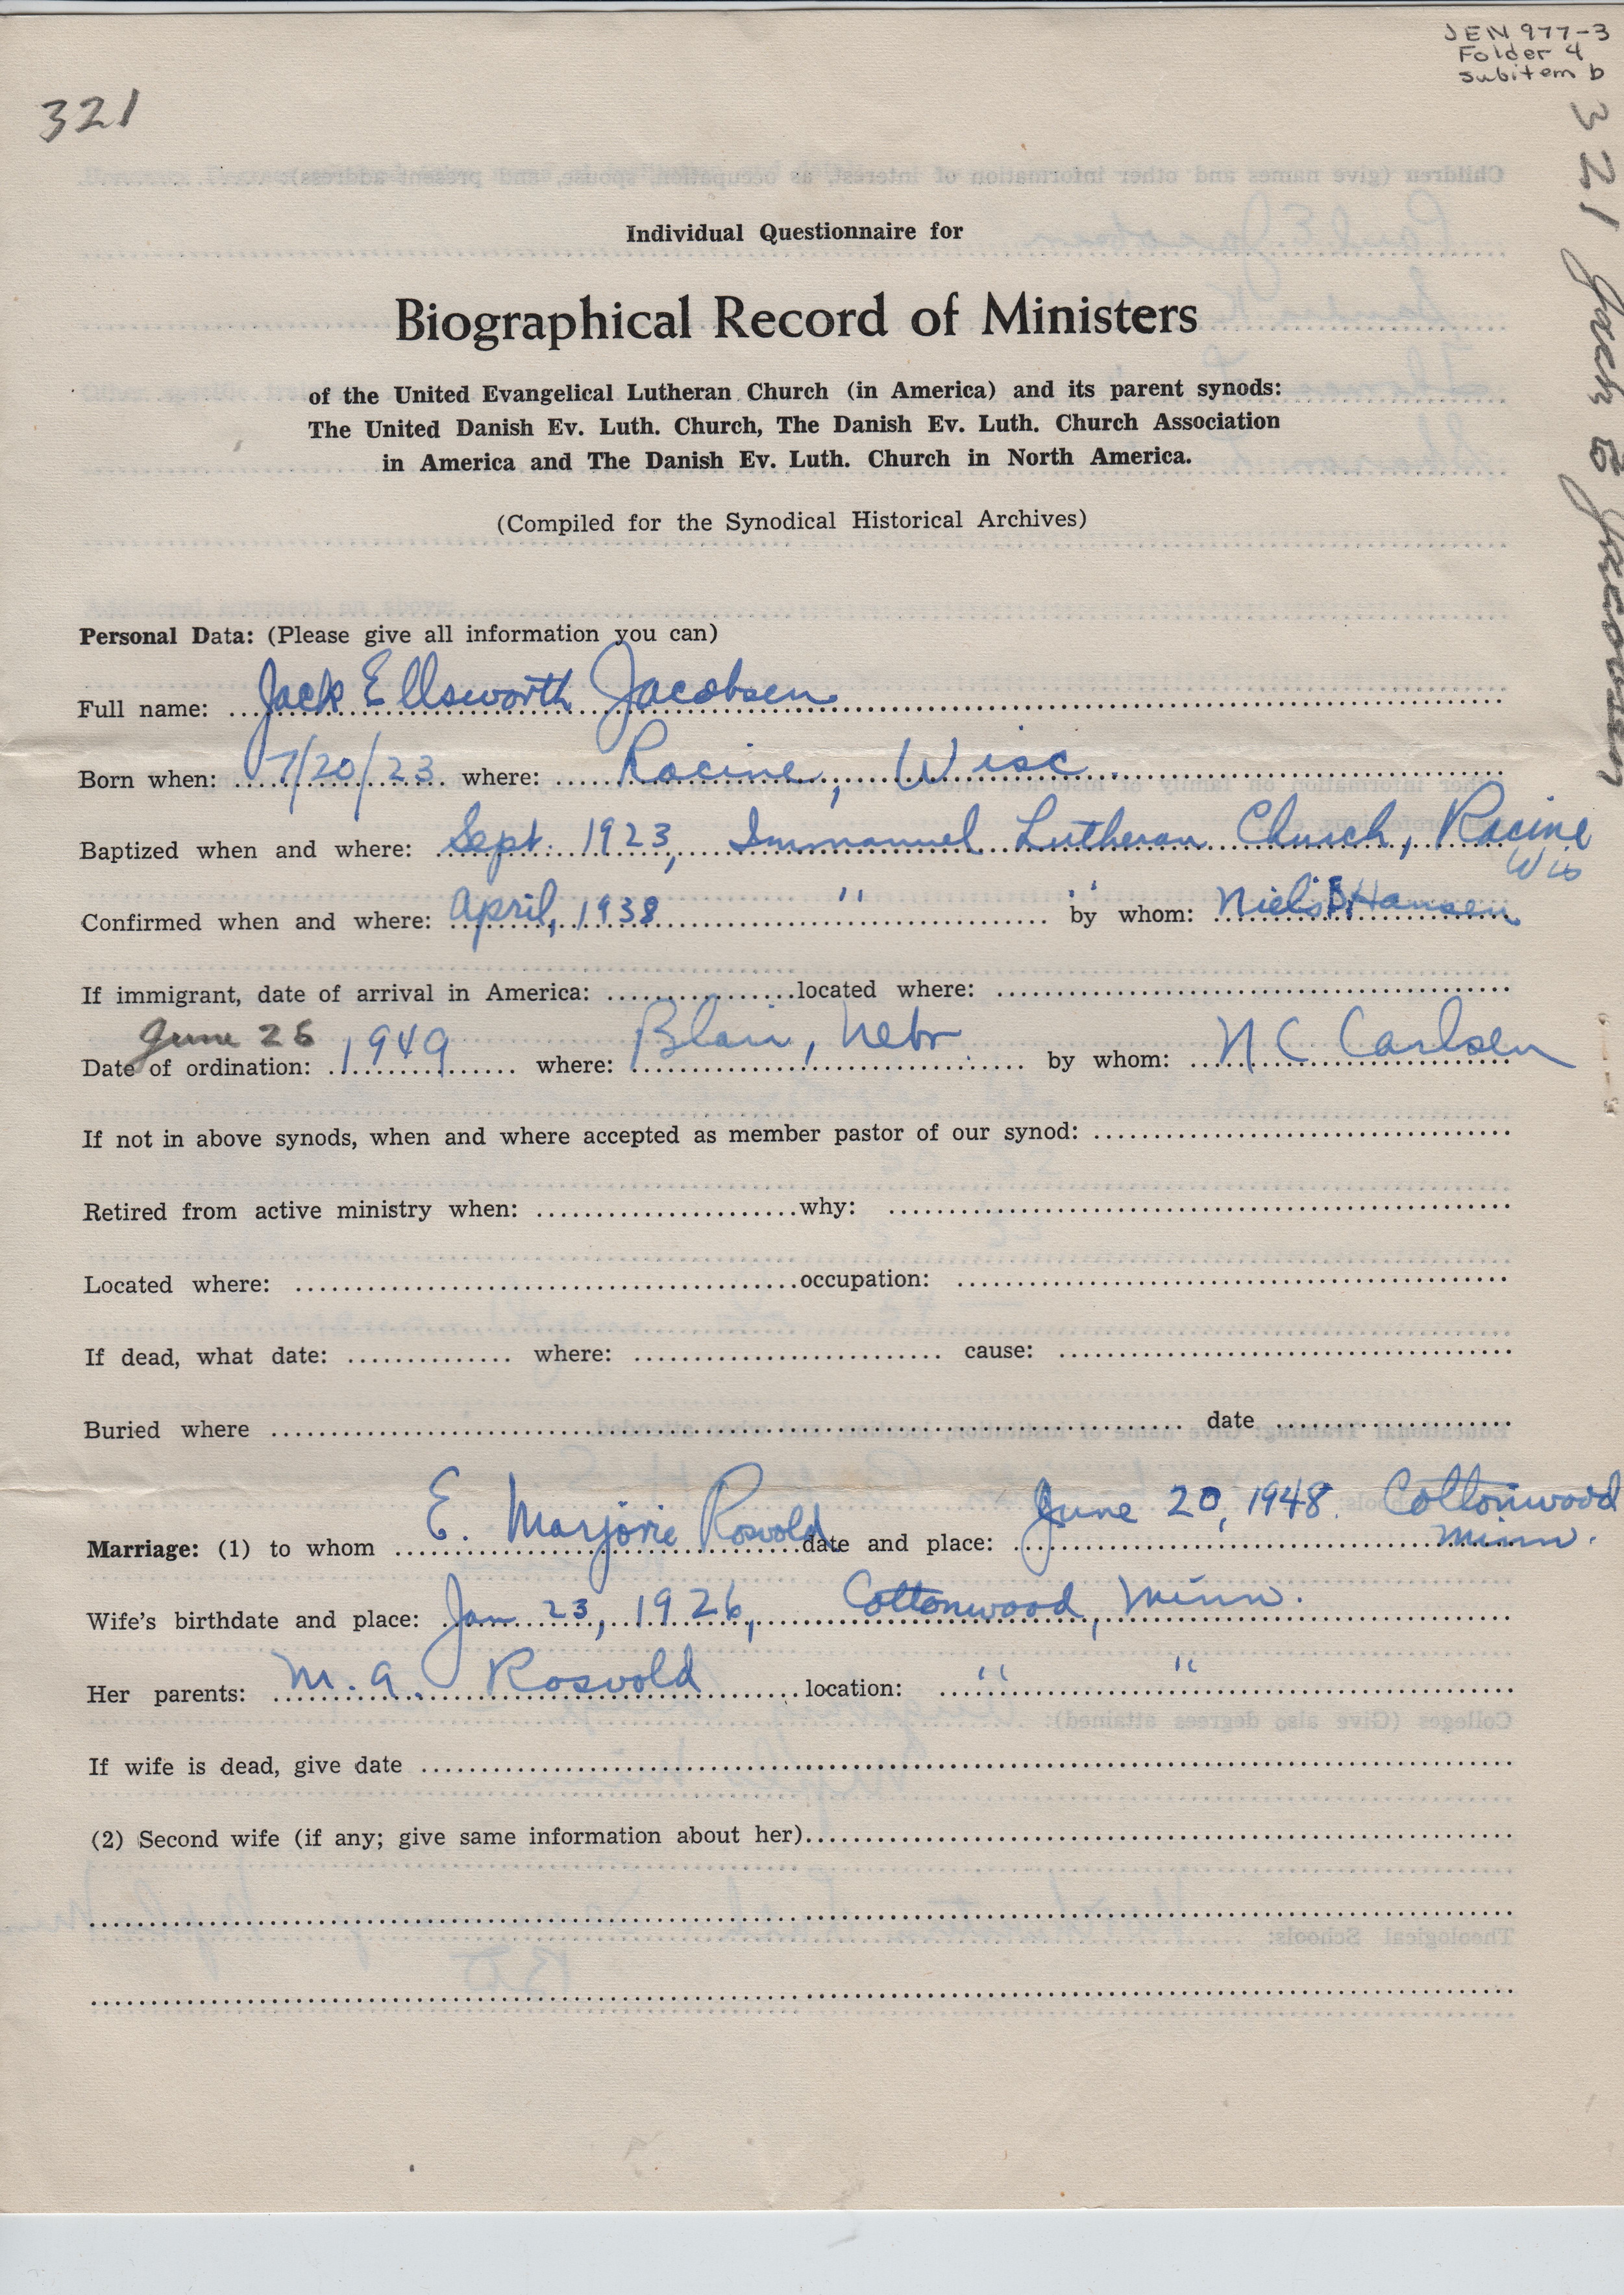 JEN 977-3
Folder 4
subitem b
321
321 Jack E Jacobsen
Individual Questionnaire for
Biographical Record of Ministers
of the United Evangelical Lutheran Church (in America) and its parent synods:
The United Danish Ev. Luth. Church, The Danish Ev. Luth. Church Association
in America and The Danish Ev. Luth. Church in North America.
(Compiled for the Synodical Historical Archives)
Personal Data: (Please give all information you can)
Full name: Jack Ellsworth Jacobsen
Born when: 7/20/23 where: Racine, Wisc.
Baptized when and where: Sept. 1923, Immanuel Lutheran Church, Racine
Wis
Confirmed when and where: April, 1938 " " by whom: Niels B Hansen
If immigrant, date of arrival in America: located where:
June 26
Date of ordination: 1949 where: Blair, Nebr. by whom: N C Carlsen
If not in above synods, when and where accepted as member pastor of our synod:
Retired from active ministry when: why:
Located where: occupation:
If dead, what date: where: cause:
Buried where date
Marriage: (1) to whom E. Marjorie Rosvold date and place: June 20, 1948. Cottonwood
Minn.
Wife's birthdate and place: Jan 23, 1926, Cottonwood, Minn.
Her parents: M. A. Rosvold location: " "
If wife is dead, give date
(2) Second wife (if any; give same information about her)